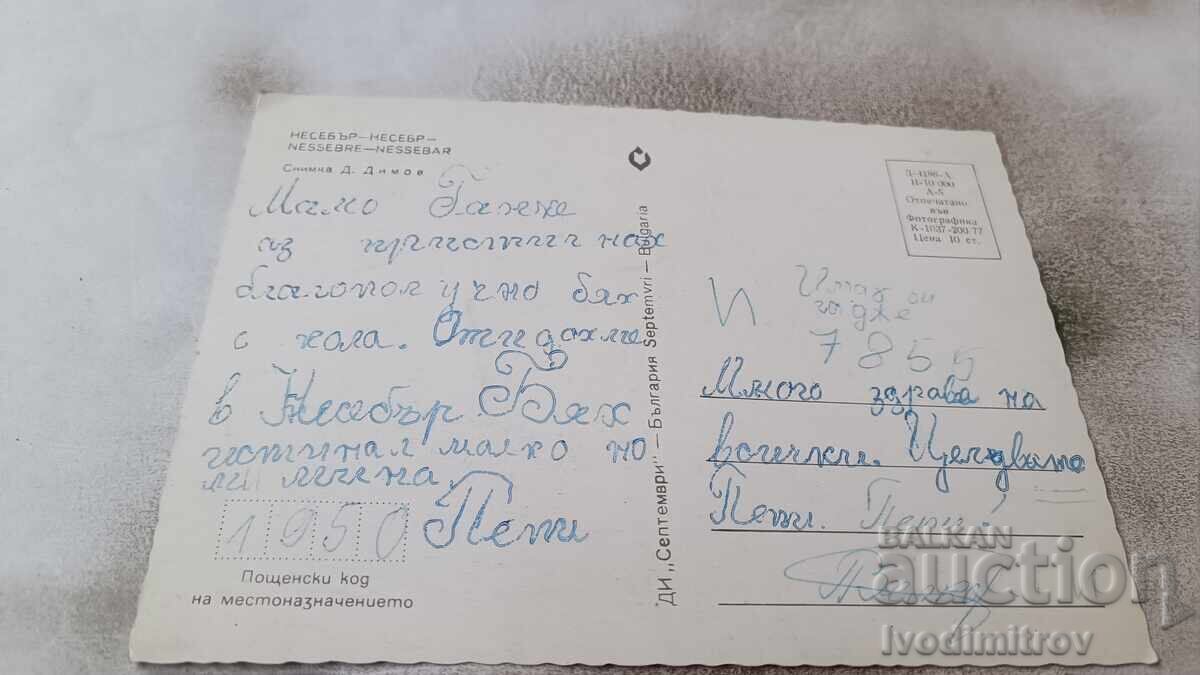 НЕСЕБЪР—НЕСЕБР—
NESSEBRE—NESSEBAR
Снимка Д. Димов
Мамо Ганке
аз пристигнах
благопол учно бях
с кола. Отидохме
в Несебър Бях
истинал малко но
ми мина.
Пети
1950
Пощенски код
на местоназначението
ДИ „Септември" — България Septemvri — Bulgaria
Д-4186-А
П-10 000
А-5
Отпечатано
във
Фотографика
К-1037-200/77
Цена 10 ст.
И
Имах си
гадже
7855
Много здраве на
всички. Целувам
Пети.
BALKAN
auction
Ivodimitrov